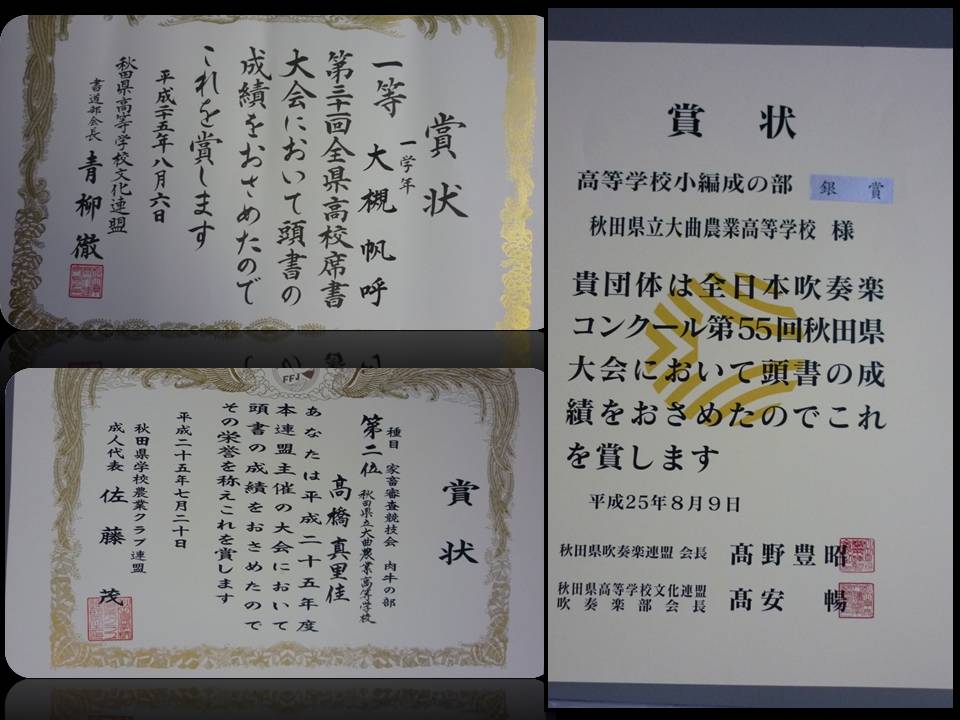 賞状
一学年
一等 大槻帆呼
第三十回全県高校席書
大会において頭書の
成績をおさめたので
これを賞します
平成二十五年八月六日
秋田県高等学校文化連盟
書道部会長 青柳徹
FFJ
賞状
種目 家畜審査競技会 肉牛の部
第二位 秋田県立大曲農業高等学校
髙橋真里佳
あなたは平成二十五年度
本連盟主催の大会において
頭書の成績をおさめたので
その栄誉を称えこれを賞します
平成二十五年七月二十日
秋田県学校農業クラブ連盟
成人代表 佐藤茂
賞状
高等学校小編成の部 銀賞
秋田県立大曲農業高等学校 様
貴団体は全日本吹奏楽
コンクール第55回秋田県
大会において頭書の成
績をおさめたのでこれ
を賞します
平成25年8月9日
秋田県吹奏楽連盟 会長 髙野豊昭
秋田県高等学校文化連盟
吹奏楽部会長 髙安暢